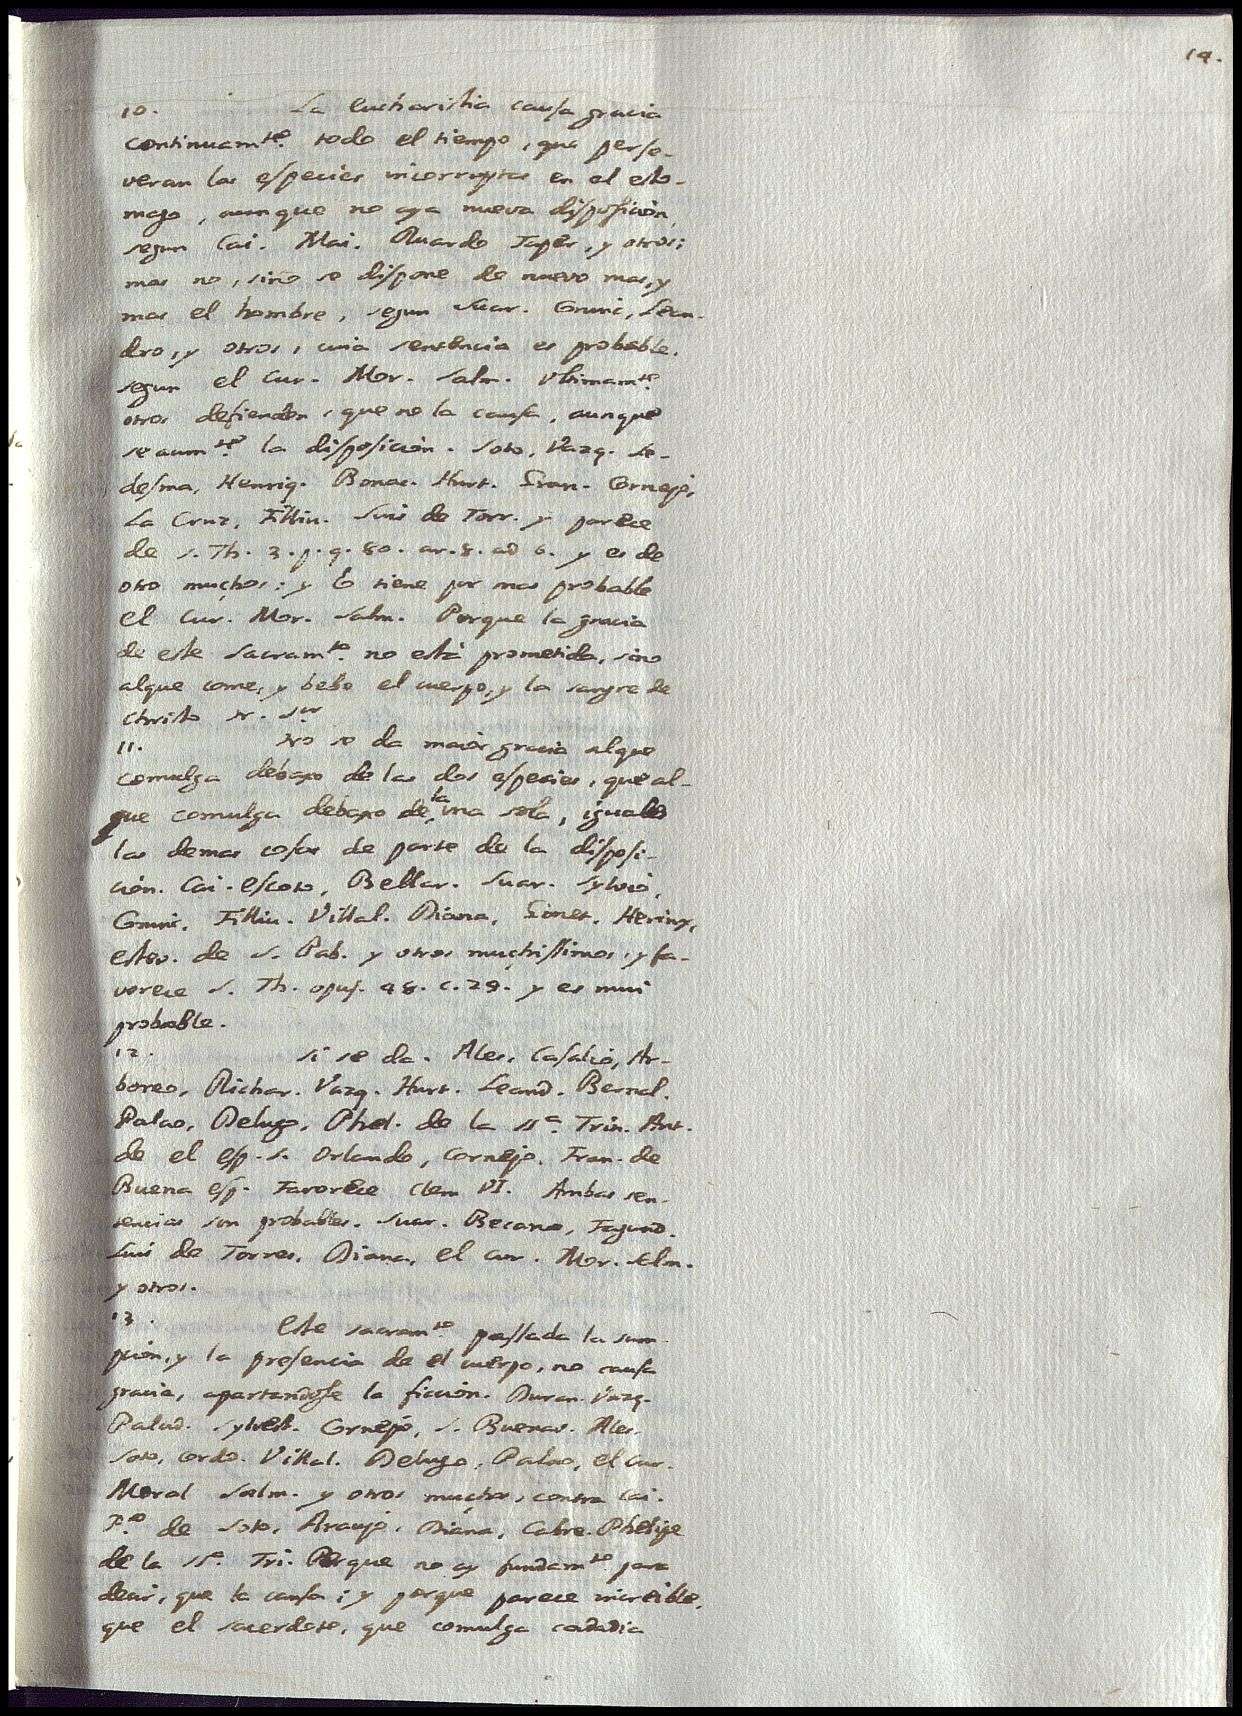 14.
10. La Eucharistia causa gracia
continuamte. todo el tiempo, que perse-
veran las especies incorruptas en el esto-
mago, aunque no aya nueva disposicion,
segun Cai. Mai. Ruardo Taper, y otros;
mas no, sino se dispone de nuevo mas, y
mas el hombre, segun Suar. Coninc, Lean-
dro, y otros, cuia sentencia es probable.
segun el Cur. Mor. Salm. Vltimamte.
otros defienden, que no la causa, aunque
se aumte. la disposicion. Soto, Vazq. Le-
desma, Henriq. Bonac. Hurt. Gran. Cornejo,
La Cruz, Filliu. Luis de Torr. y parece
de S. Th. 3. p. q. 80. ar. 8. ad 6. y es de
otro muchos: y lo tiene por mas probable
el Cur. Mor. Salm. Porque la gracia
de este Sacramto. no està prometida, sino
al que come, y bebe el cuerpo, y la sangre de
Christo N. Sr.
11. No se da maior gracia al que
comulga debaxo de las dos especies, que al-
que comulga debaxo de la vna sola, iguales
las demas cosas de parte de la disposi-
cion. Cai. Escoto, Bellar. Suar. Sylvio,
Coninc. Filliu. Villal. Diana, Gonet, Herinx,
Estev. de S. Pab. y otros muchissimos, y fa-
vorece S. Th. opus. 48. c. 29. y es mui
probable.
12. Si se da. Ales, Casalio, Ar-
boreo, Richar. Vazq. Hurt. Leand. Bernal.
Palao, Delugo, Phel. de la SSa. Trin. Ant.
de el Esp. S. Orlando, Cornejo. Fran. de
Buena Esp. Favorece Clem VI. Ambas sen-
tencias son probables. Suar. Becano, Fagund.
Luis de Torres, Diana, el Cur. Mor. Salm.
y otros.
13. Este sacramto. passada la sum-
pcion, y la presencia de el cuerpo, no causa
gracia, apartandose la ficcion. Duran. Vazq.
Palud. Sylvest. Cornejo, S. Buenav. Ales.
Soto, Cordo. Villal. Delugo, Palao, el Cur.
Moral Salm. y otros muchos, contra Cai.
Po. de Soto, Araujo, Diana, Cabre. Phelipe
de la SSa. Tri. Porque no ay fundamto. para
decir, que la causa; y porque parece increible,
que el sacerdote, que comulga cada dia